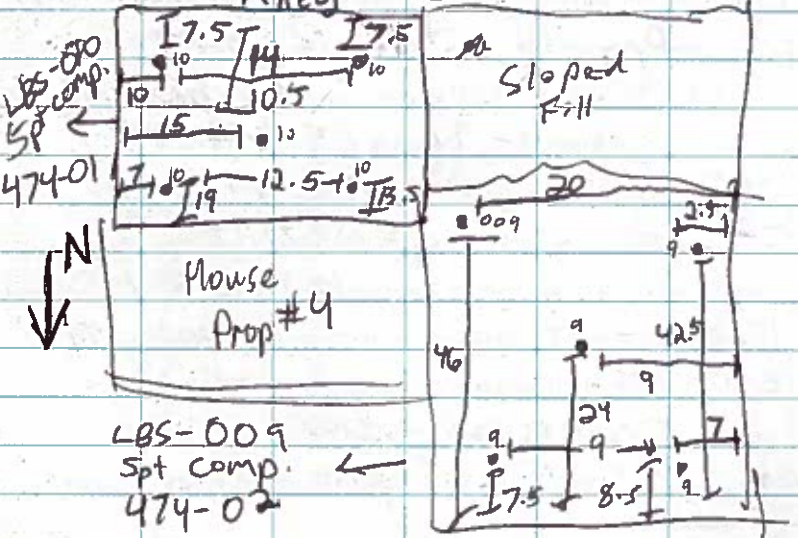 I 7.5
I 7.5
14
10
10
10
10.5
LBS-010
5pt comp.
474-01
15
10
7
10
12.5
10
19
Sloped
Fill
20
009
2.5
9
N
House
Prop #4
46
9
42.5
9
24
9
9
7
9
7.5
8.5
LBS-009
5pt comp.
474-02